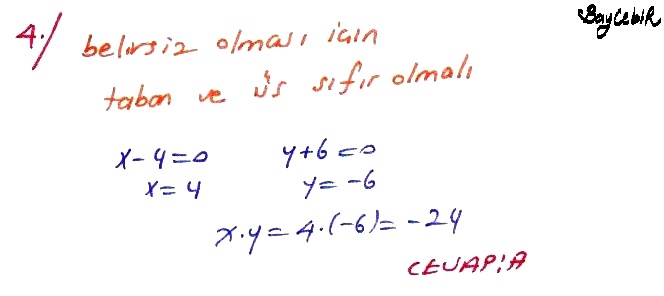 BayCebiR
4./ belirsiz olması için
taban ve üs sıfır olmalı
x-4=0 y+6=0
x=4 y=-6
x.y=4.(-6)=-24
CEVAP:A